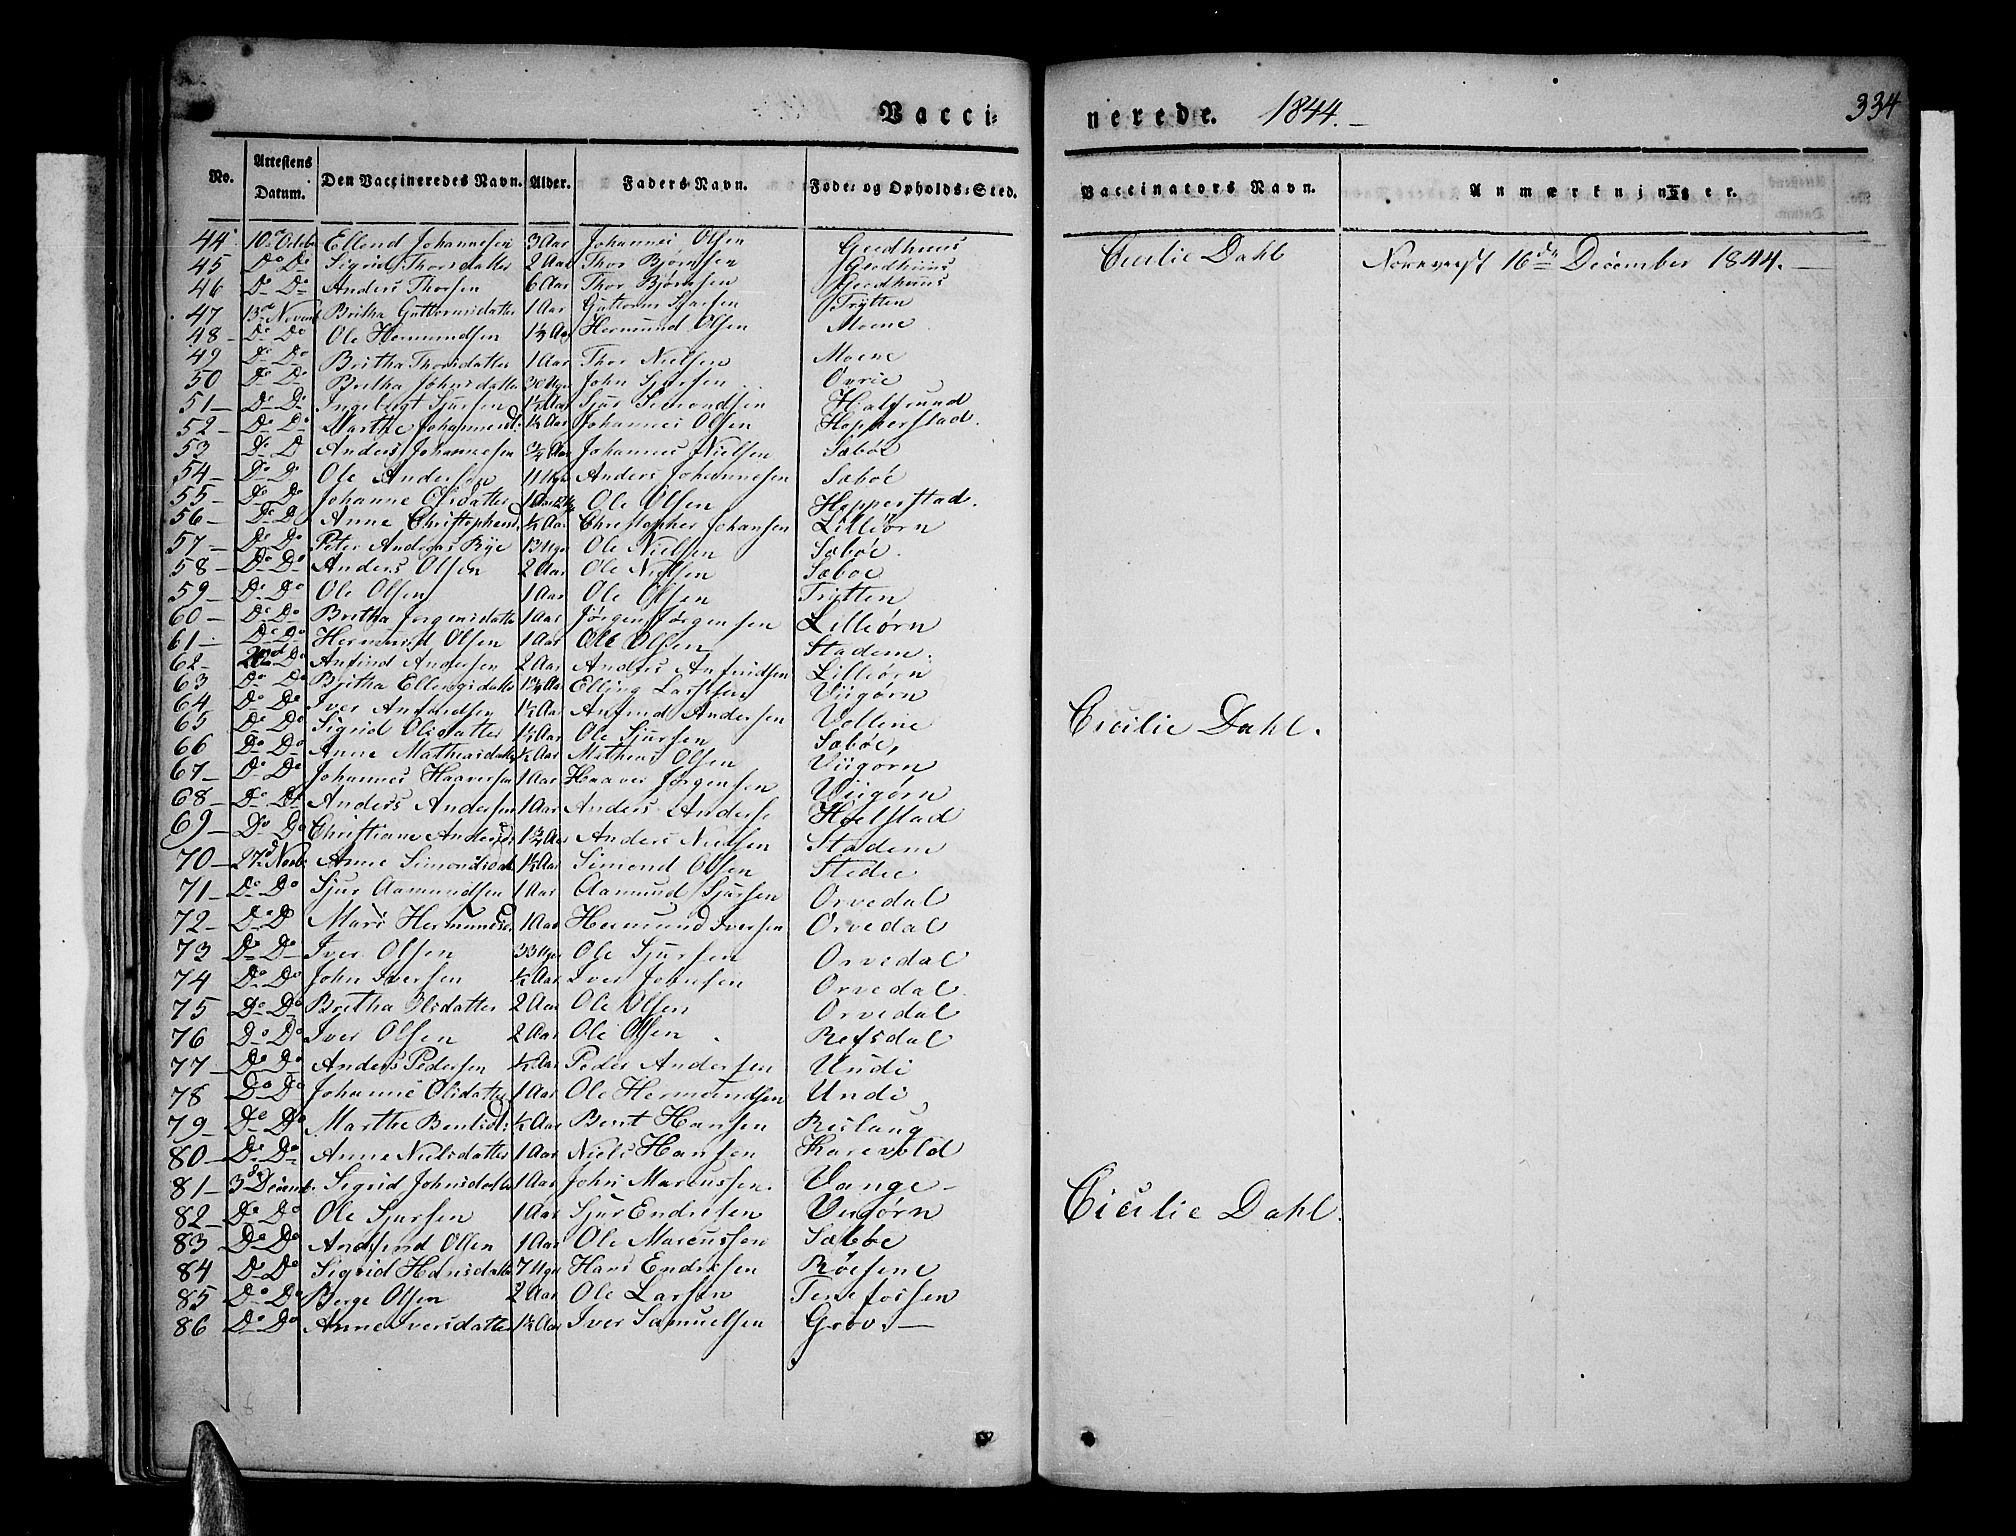 Vacci-
nerede. 1844.
334
No. Attestens Datum. Den Vaccineredes Navn. Alder. Faders Navn. Føde- og Opholds-Sted.
Vaccinators Navn. Anmærkninger.
44 10 Octob Ellend Johannesen 3 Aar Johannes Olsen Geedhuus Cecilie Dahl Nonevest 16de December 1844.
45 Do Do Sigrid Thorsdatter 2 Aar Thor Bjørnsen Geedhuus
46 Do Do Anders Thorsen 6 Aar Thor Bjørnsen Geedhuus
47 13 Novemb Britha Guttormsdatter 1 Aar Guttorm Sjursen Trytten
48 Do Do Ole Hermundsen 1½ Aar Hermund Olsen Moene
49 Do Do Britha Thorsdatter 1 Aar Thor Nielsen Moene
50 Do Do Britha Johnsdatter 30 Uger John Sjursen Ovrie
51 Do Do Ingebrigt Sjursen 1½ Aar Sjur Simondsen Halsrund
52 Do Do Marthe Johannesd. ½ Aar Johannes Olsen Hopperstad.
53 Do D Anders Johannesen ¾ Aar Johannes Nielsen Sæbøe
54 Do Do Ole Andersen 11 Uger Anders Johannesen Sæbøe
55 Do Do Johanne Olsdatter 1 Aar Ole Olsen Hopperstad.
56 Do D Anne Christophersd ½ Aar Christopher Johansen Lilleørn
57 Do Do Peter Andreas Rye 13 Uger Ole Nielsen Sæbøe.
58 Do Do Anders Olsen 2 Aar Ole Nielsen Sæboe
59 Do Do Ole Olsen 1 Aar Ole Olsen Trytten
60 Do Do Britha Jørgensdatter 1 Aar Jørgen Jørgensen Lilleørn
61 Do Do Hermund Olsen 1 Aar Ole Olsen Stadem.
62 Do Anfind Andersen 2 Aar Anders Anfindsen Lilleørn
63 Do Do Britha Ellingsdatter 1¾ Aar Elling Larssen Viigørn
64 Do Do Iver Anfindsen 1½ Aar Anfind Andersen Vollene Cicilie Dahl.
65 Do Do Sigrid Olsdatter 1½ Aar Ole Sjursen Sæbøe,
66 Do Do Anne Mathiasdatter ½ Aar Mathias Olsen Viigørn
67 Do Do Johannes Haaversen 1 Aar Haaver Jørgensen Viigørn
68 Do Do Anders Andersen 1 Aar Anders Anders. Hoelstad
69 Do Do Christiane Andersd 1¾ Aar Anders Nielsen Stadem
70 27 Novb Anne Simondsdat 1½ Aar Simond Olsen Stedie
71 Do Do Sjur Aamundsen 1 Aar Aamund Sjursen Orvedal
72 Do D Mari Hermundsd 1 Aar Hermund Iversen Orvedal
73 Do Do Iver Olsen 33 Uger Ole Sjursen Orvedal
74 Do Do John Iversen ½ Aar Iver Johnsen Orvedal
75 Do Do Britha Olsdatter 2 Aar Ole Olsen Orvedal
76 Do Do Iver Olsen 2 Aar Ole Olsen Refsdal
77 Do Do Anders Pedersen ½ Aar Peder Andersen Undi
78 Do Do Johanne Olsdatter 1 Aar Ole Hermundsen Undi
79 Do Do Marthe Bentsd. ½ Aar Bent Hansen Reslaug
80 Do Do Anne Nielsdatter 1 Aar Niels Hansen Karevold
81 3 Decemb. Sigrid Johnsdatter 1 Aar John Marcussen. Vange Cicilie Dahl.
82 Do Do Ole Sjursen 1 Aar Sjur Endresen Vigørn
83 Do Do Andfind Olsen 1 Aar Ole Marcussen Sæbøe
84 Do Do Sigrid Hansdatter 7 Uger Hans Endresen Røesene
85 Do Do Berge Olsen 2 Aar Ole Larsen Tenefossen
86 Do Do Anne Iversdatter 1½ Aar Iver Samuelsen Grov.